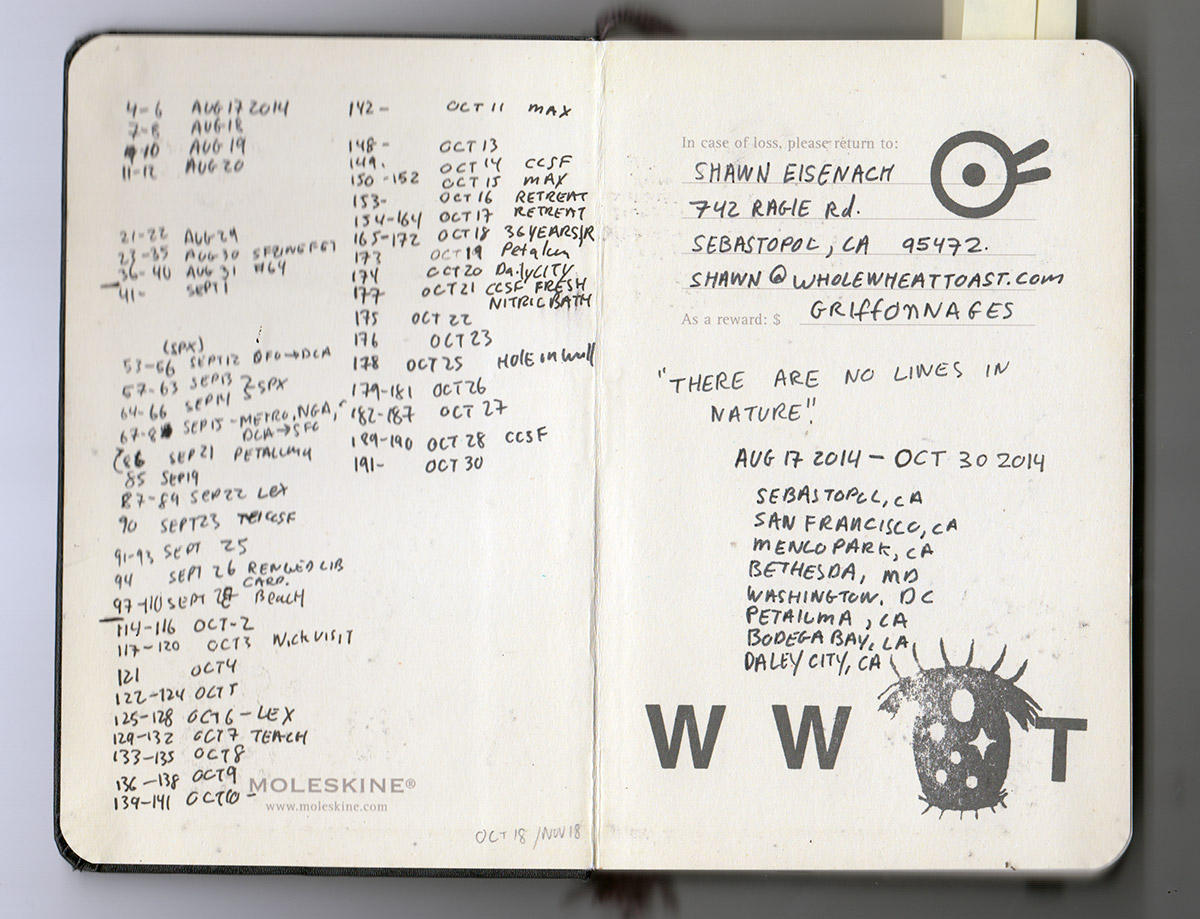 4-6 AUG 17 2014
7-8 AUG 18
10 AUG 19
11-12 AUG 20
21-22 AUG 29
23-35 AUG 30
36-40 AUG 31 #64
41- SEPT 1
(SPX)
53-56 SEPT 12 → DCA
57-63 SEP 13 SPX
64-66 SEP 14
67-8 SEP 15 - METRO, NGA,
DCA → SFO
86 SEP 21 PETALUMA
85 SEP 19
87-89 SEP 22 LEX
90 SEPT 23 CCSF
91-93 SEPT 25
94 SEPT 26 RENEWED LIB
CARD.
97-110 SEPT 28 BEACH
114-116 OCT-2
117-120 OCT 3 NICK VISIT
121 OCT 4
122-124 OCT 5
125-128 OCT 6 - LEX
129-132 OCT 7 TEACH
133-135 OCT 8
136-138 OCT 9
139-141 OCT 10 -
142- OCT 11 MAX
148- OCT 13
149. OCT 14 CCSF
150-152 OCT 15 MAX
153- OCT 16 RETREAT
154-164 OCT 17 RETREAT
165-172 OCT 18 36 YEARS/R
173 OCT 19 Petaluma
174 OCT 20 DailyCITY
177 OCT 21 CCSF FRESH
NITRIC BATH
175 OCT 22
176 OCT 23
178 OCT 25 HOLE in Wall
179-181 OCT 26
182-187 OCT 27
189-190 OCT 28 CCSF
191- OCT 30
MOLESKINE®
www.moleskine.com
OCT 18 / NOV 18
In case of loss, please return to:
SHAWN EISENACH
742 RAGLE Rd.
SEBASTOPOL, CA 95472.
SHAWN@WHOLEWHEATTOAST.COM
GRIFFONNAGES
As a reward: $
"THERE ARE NO LINES IN
NATURE"
AUG 17 2014 - OCT 30 2014
SEBASTOPOL, CA
SAN FRANCISCO, CA
MENLO PARK, CA
BETHESDA, MD
WASHINGTON, DC
PETALUMA, CA
BODEGA BAY, CA
DALEY CITY, CA
W W T